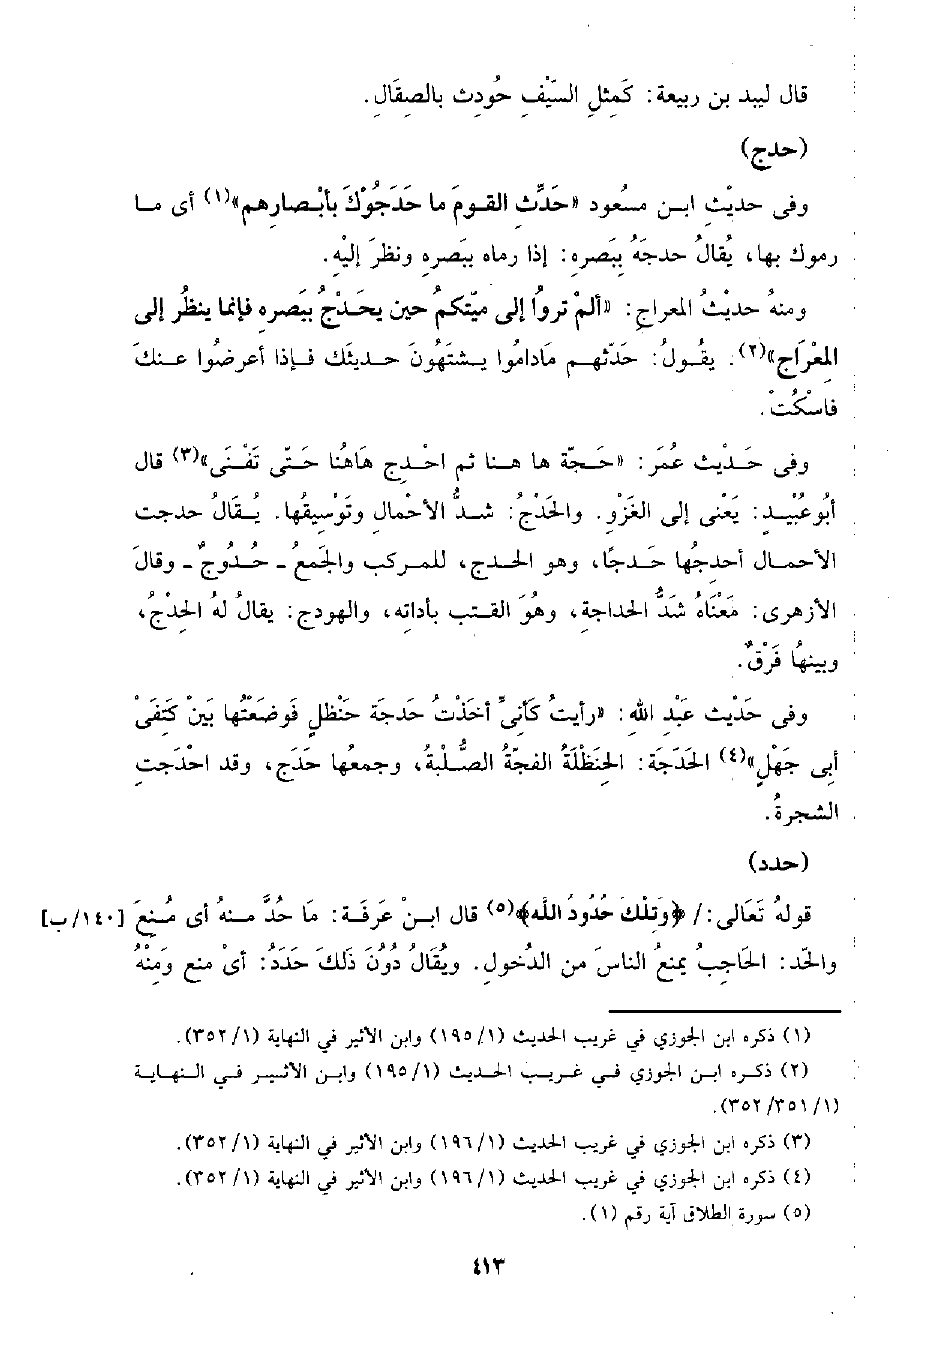 قال لبيد بن ربيعة: كَمِثلِ السيَّفِ حُودِث بالصِقَالِ.
(حدج)
وفى حديْثِ ابـن مسعُود «حَدِّث القـومَ ما حَدَجُوْكَ بأبْصارهِم»(١) أى مـا
رموك بها، يُقالُ حدجهُ بِبَصره: إذا رماه ببَصره ونظرَ إليْهِ.
ومنهُ حديْثُ المعراجِ: «ألمْ تروُا إلى ميّتكم حين يحَـدْجُ بِبَصره فإنما ينظُر إلى
المِعْرَاج»(٢). يقـولُ: حَدّثهـم مَادامُوا يـشتَهُونَ حَـديثك فـإذا أعرضُوا عـنكَ
فاسْكُتْ.
وفى حَـديْث عُمَر: «حَـجّة ها هـنا ثم احْـدِج هَاهُنا حَـتّى تَفْـنَى»(٣) قال
أبُوعُبْيـد: يَعْنِى إلى الغَزْوِ. والحَدْجُ: شـدُّ الأحْمالِ وتَوْسيقُها. يُـقَالُ حدجت
الأحمـال أحدجُها حَـدجًا، وهو الحـدج، للمـركب والجَمعُ ـ حُـدُوجٌ ـ وقالَ
الأزهرى: مَعْنَاهُ شَدُّ الحداجة، وهُوَ القـتب بأداته، والهودج: يقالُ لهُ الحدْجُ،
وبينهُا فَرْقٌ.
وفى حَدْيث عَبْدِ اللهِ: «رأيتُ كَأنىِّ أخَذْتُ حَدجَة حَنْظلٍ فَوضَعْتُها بَيْنَ كَتِفَىْ
أبِى جَهْلٍ»(٤) الحَدَجَة: الحَنظَلَةُ الفجّةُ الصُّـلبةُ، وجمعُها حَدَج، وقد احْدَجتِ
الشجرةُ.
(حدد)
قولهُ تَعَالى: / ﴿وَتِلْكَ حُدُودُ الله﴾(٥) قال ابـنْ عَرفَة: مَا حُدَّ مـنهُ أى مُـنِعَ [١٤٠/ب]
والحَدّ: الحَاجِبُ يمنعُ الناسَ من الدُخولِ. ويُقَالُ دُوْنَ ذَلكَ حَدَدُ: أىْ منع وَمِنْهُ
(١) ذكره ابن الجوزي في غريب الحديث (١٩٥/١) وابن الأثير في النهاية (٣٥٢/١).
(٢) ذكـره ابـن الجوزي فـي غـريـب الحـديث (١٩٥/١) وابـن الأثـيـر فـي الـنـهـايـة
(٣٥٢/٣٥١/١).
(٣) ذكره ابن الجوزي في غريب الحديث (١٩٦/١) وابن الأثير في النهاية (٣٥٢/١).
(٤) ذكره ابن الجوزي في غريب الحديث (١٩٦/١) وابن الأثير في النهاية (٣٥٢/١).
(٥) سورة الطلاق آية رقم (١).
٤١٣